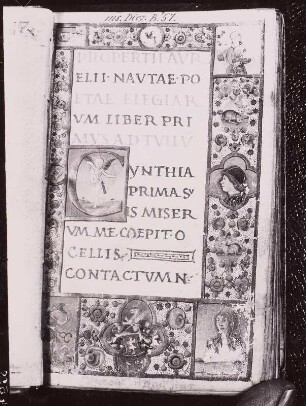 ms. Diez. B. 57.
PROPERTII AVR
ELII· NAVTAE· PO
ETAE ELEGIAR
VM LIBER PRI
MVS AD TVLLV
CYNTHIA
PRIMA· SV
IS MISER
VM· ME· COEPIT· O
CELLIS
CONTACTVM N